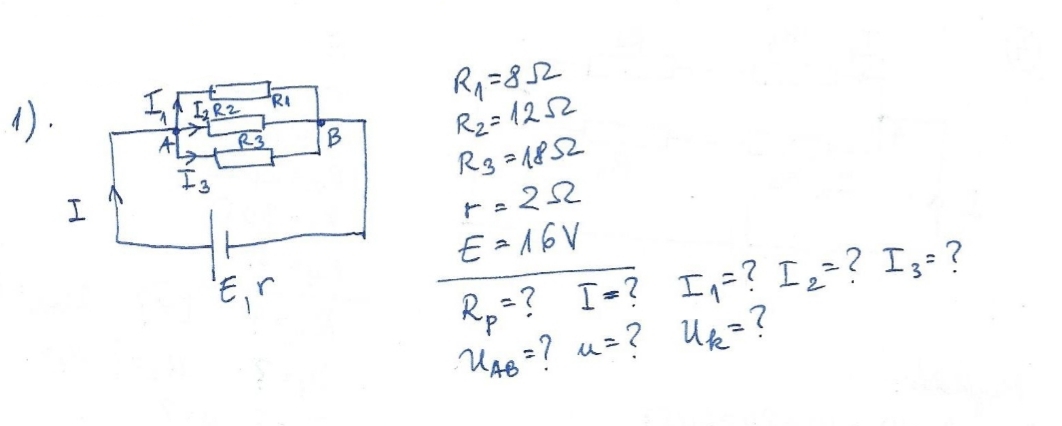 1).
I₁ I₂ R2 R1
A R3 B
I₃
I
E, r
R₁=8Ω
R₂=12Ω
R₃=18Ω
r=2Ω
E=16V
Rₚ=? I=? I₁=? I₂=? I₃=?
U_AB=? u=? U_k=?